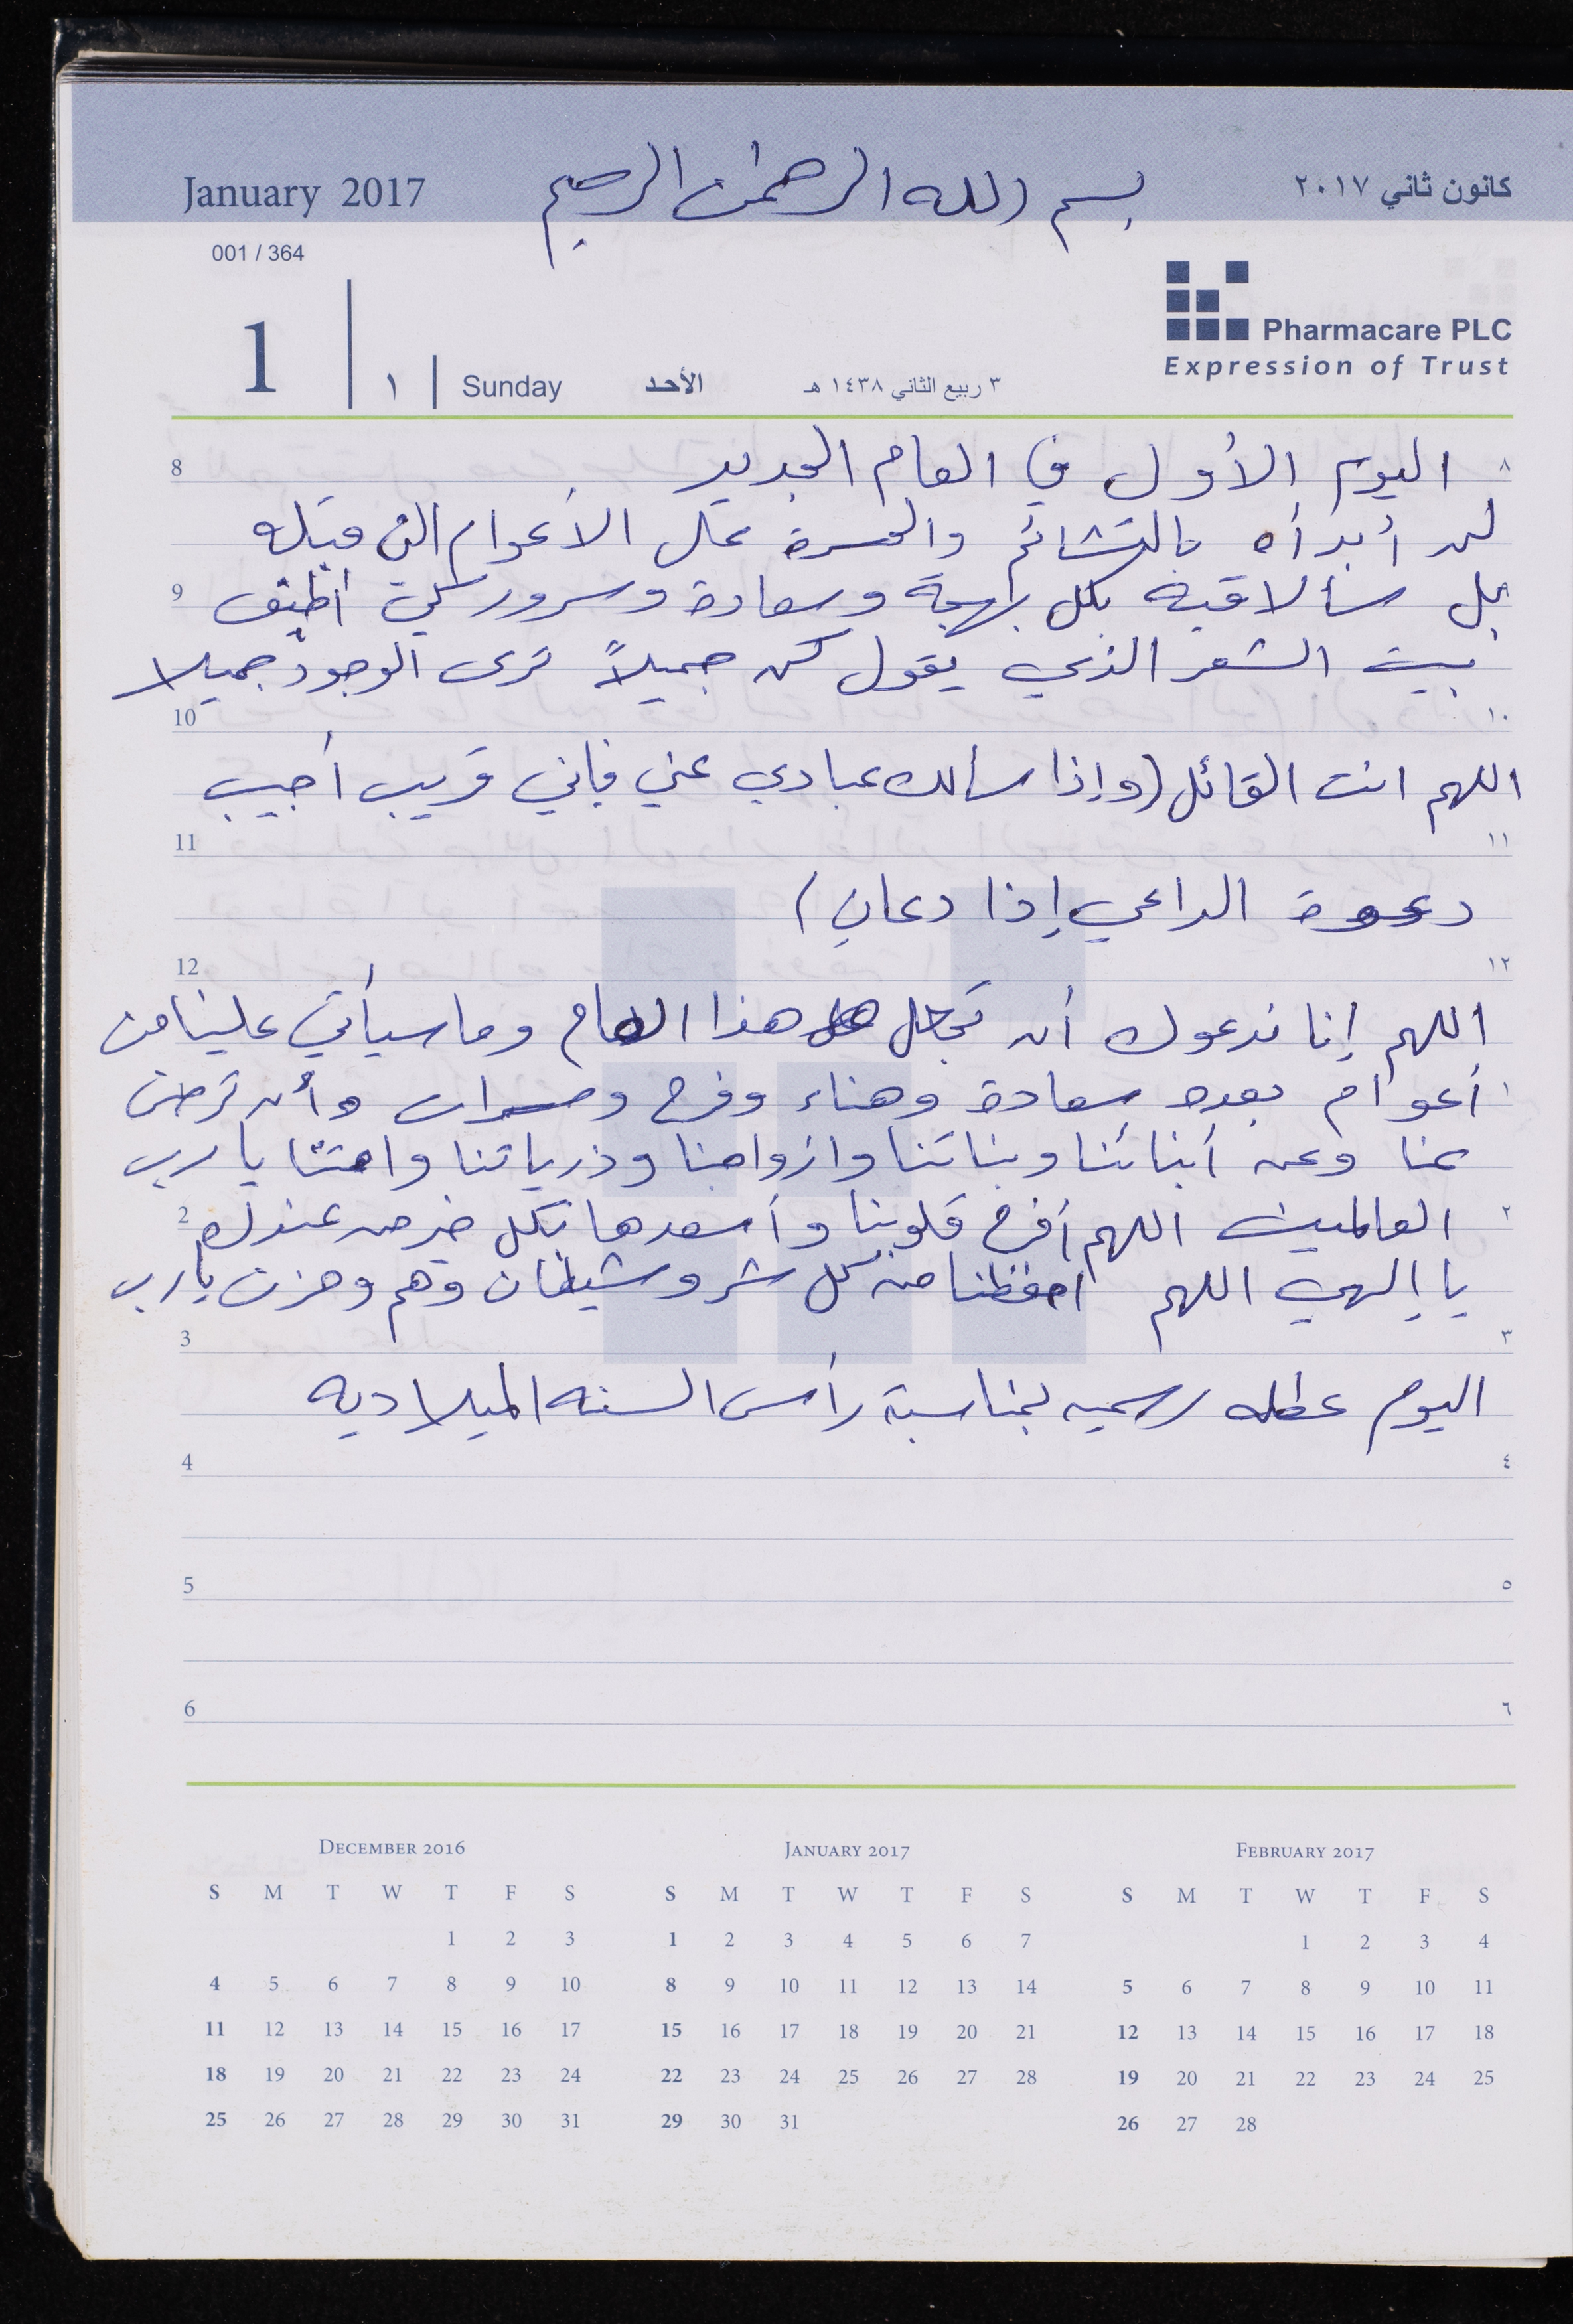 January 2017 بسم الله الرحمن الرحيم كانون ثاني ٢٠١٧
001 / 364
Pharmacare PLC
Expression of Trust
1 ١ Sunday الأحد ٣ ربيع الثاني ١٤٣٨ هـ
8 اليوم الأول في العام الجديد ٨
لن أبدأه بالتشائم والحسرة على الأعوام التي قبله
9 بل سألاقيه بكل بهجة وسعادة وسرور لكي أطبق
بيت الشعر الذي يقول كن جميلاً ترى الوجود جميلا
10 ١٠
اللهم انت القائل (وإذا سألك عبادي عني فإني قريب أجيب
11 ١١
دعوة الداعي إذا دعانِ)
12 ١٢
اللهم إنا ندعوك أن تجعل هذا العام وما سيأتي علينا من
أعوام بعده سعادة وهناء وفرح ومسرات وأن ترضى ١
عنا وعن أبنائنا وبناتنا وازواجنا وذرياتنا وامتنا يا رب
2 العالمين اللهم أفرح قلوبنا وأسعدها بكل خير من عندك ٢
يا إلهي اللهم احفظنا من كل شر وشيطان وهم وحزن يا رب
3 ٣
اليوم عطله رسميه بمناسبة رأس السنه الميلاديه
4 ٤
5 ٥
6 ٦
December 2016
S M T W T F S
1 2 3
4 5 6 7 8 9 10
11 12 13 14 15 16 17
18 19 20 21 22 23 24
25 26 27 28 29 30 31
January 2017
S M T W T F S
1 2 3 4 5 6 7
8 9 10 11 12 13 14
15 16 17 18 19 20 21
22 23 24 25 26 27 28
29 30 31
February 2017
S M T W T F S
1 2 3 4
5 6 7 8 9 10 11
12 13 14 15 16 17 18
19 20 21 22 23 24 25
26 27 28